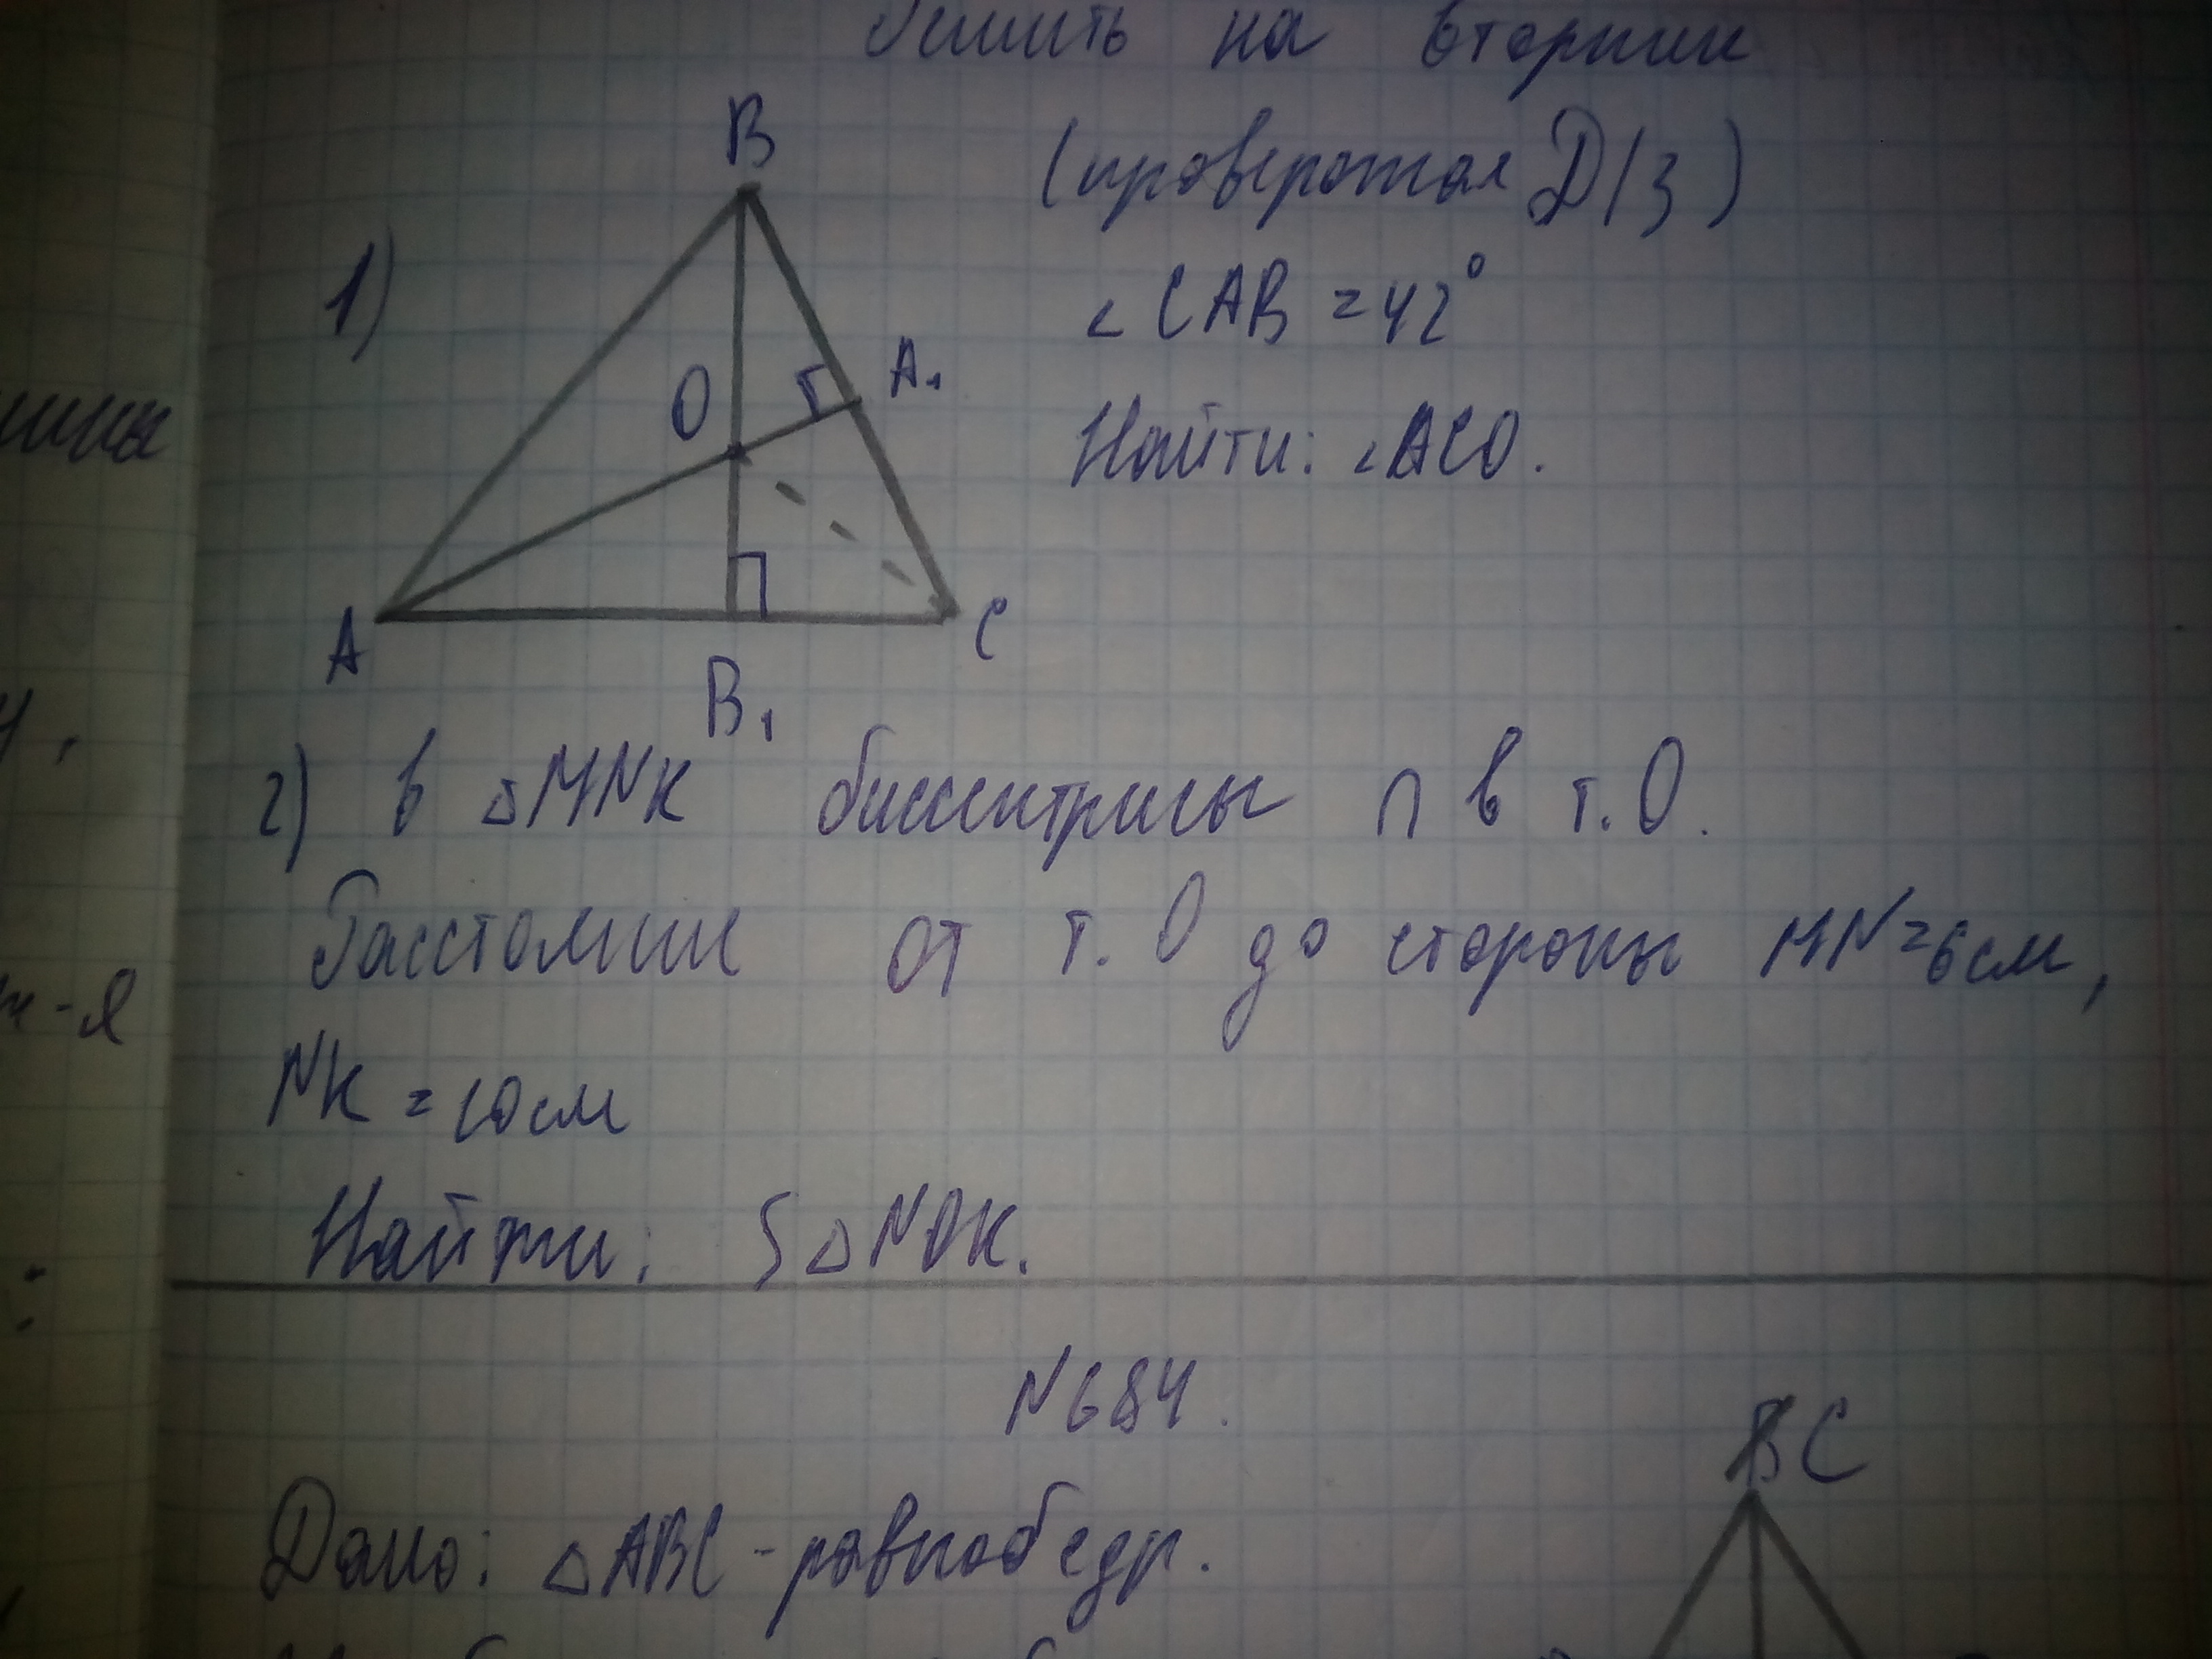 на вторник
B
(проверочная Д/З)
1)
∠CAB = 42°
O
A₁
Найти: ∠ACO.
A
C
B₁
2) В △MNK биссектрисы ∩ в т.О.
Расстояние от т. О до стороны MN = 6 см,
NK = 10 см
Найти: S△NOK.
N684.
C
Дано: △ABC - равнобедр.